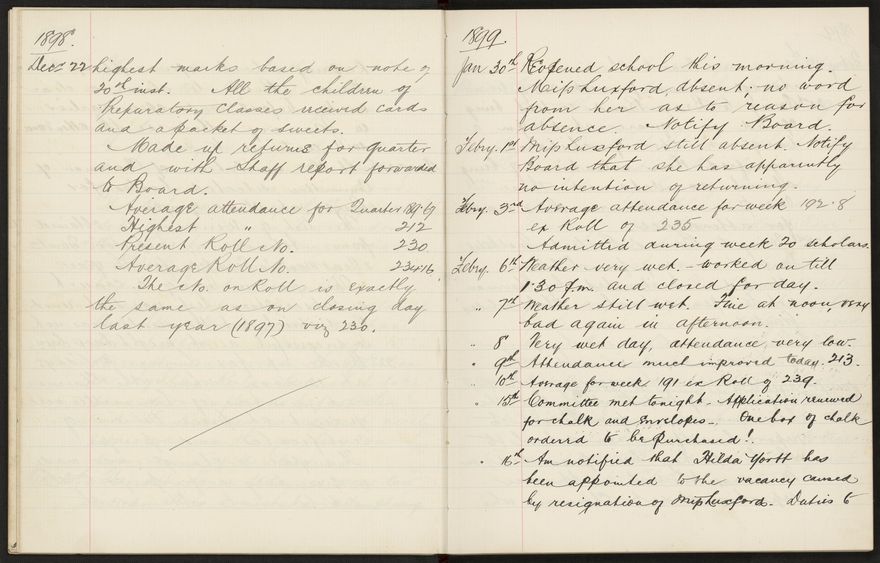 1898.
Decr 22 highest marks based on note of
20th inst. All the children of
Preparatory Classes received cards
and a packet of sweets.
Made up returns for quarter
and with Staff report forwarded
to Board.
Average attendance for Quarter
Highest " 212
Present Roll No. 230
Average Roll No. 234.16
The No. on Roll is exactly
the same as on closing day
last year (1897) viz 230.
1899.
Jan 30th Reopened school this morning.
Miss Luxford, absent; no word
from her as to reason for
absence. Notify Board.
Febry. 1st Miss Luxford still absent. Notify
Board that she has apparently
no intention of returning.
Febry. 3rd Average attendance for week 192.8
ex Roll of 235
Admitted during week 20 scholars.
Febry. 6th Weather very wet. - worked on till
1.30 p.m. and closed for day.
" 7th Weather still wet. Fine at noon, very
bad again in afternoon.
" 8 Very wet day, attendance, very low.
" 9th Attendance much improved today. 213.
" 10th Average for week 191 ex Roll of 239.
" 15th Committee met tonight. Application renewed
for chalk and envelopes. One box of chalk
orderrd to be purchased!
" 16th Am notified that Hilda Yortt has
been appointed to the vacancy caused
by resignation of Miss Luxford. Duties to